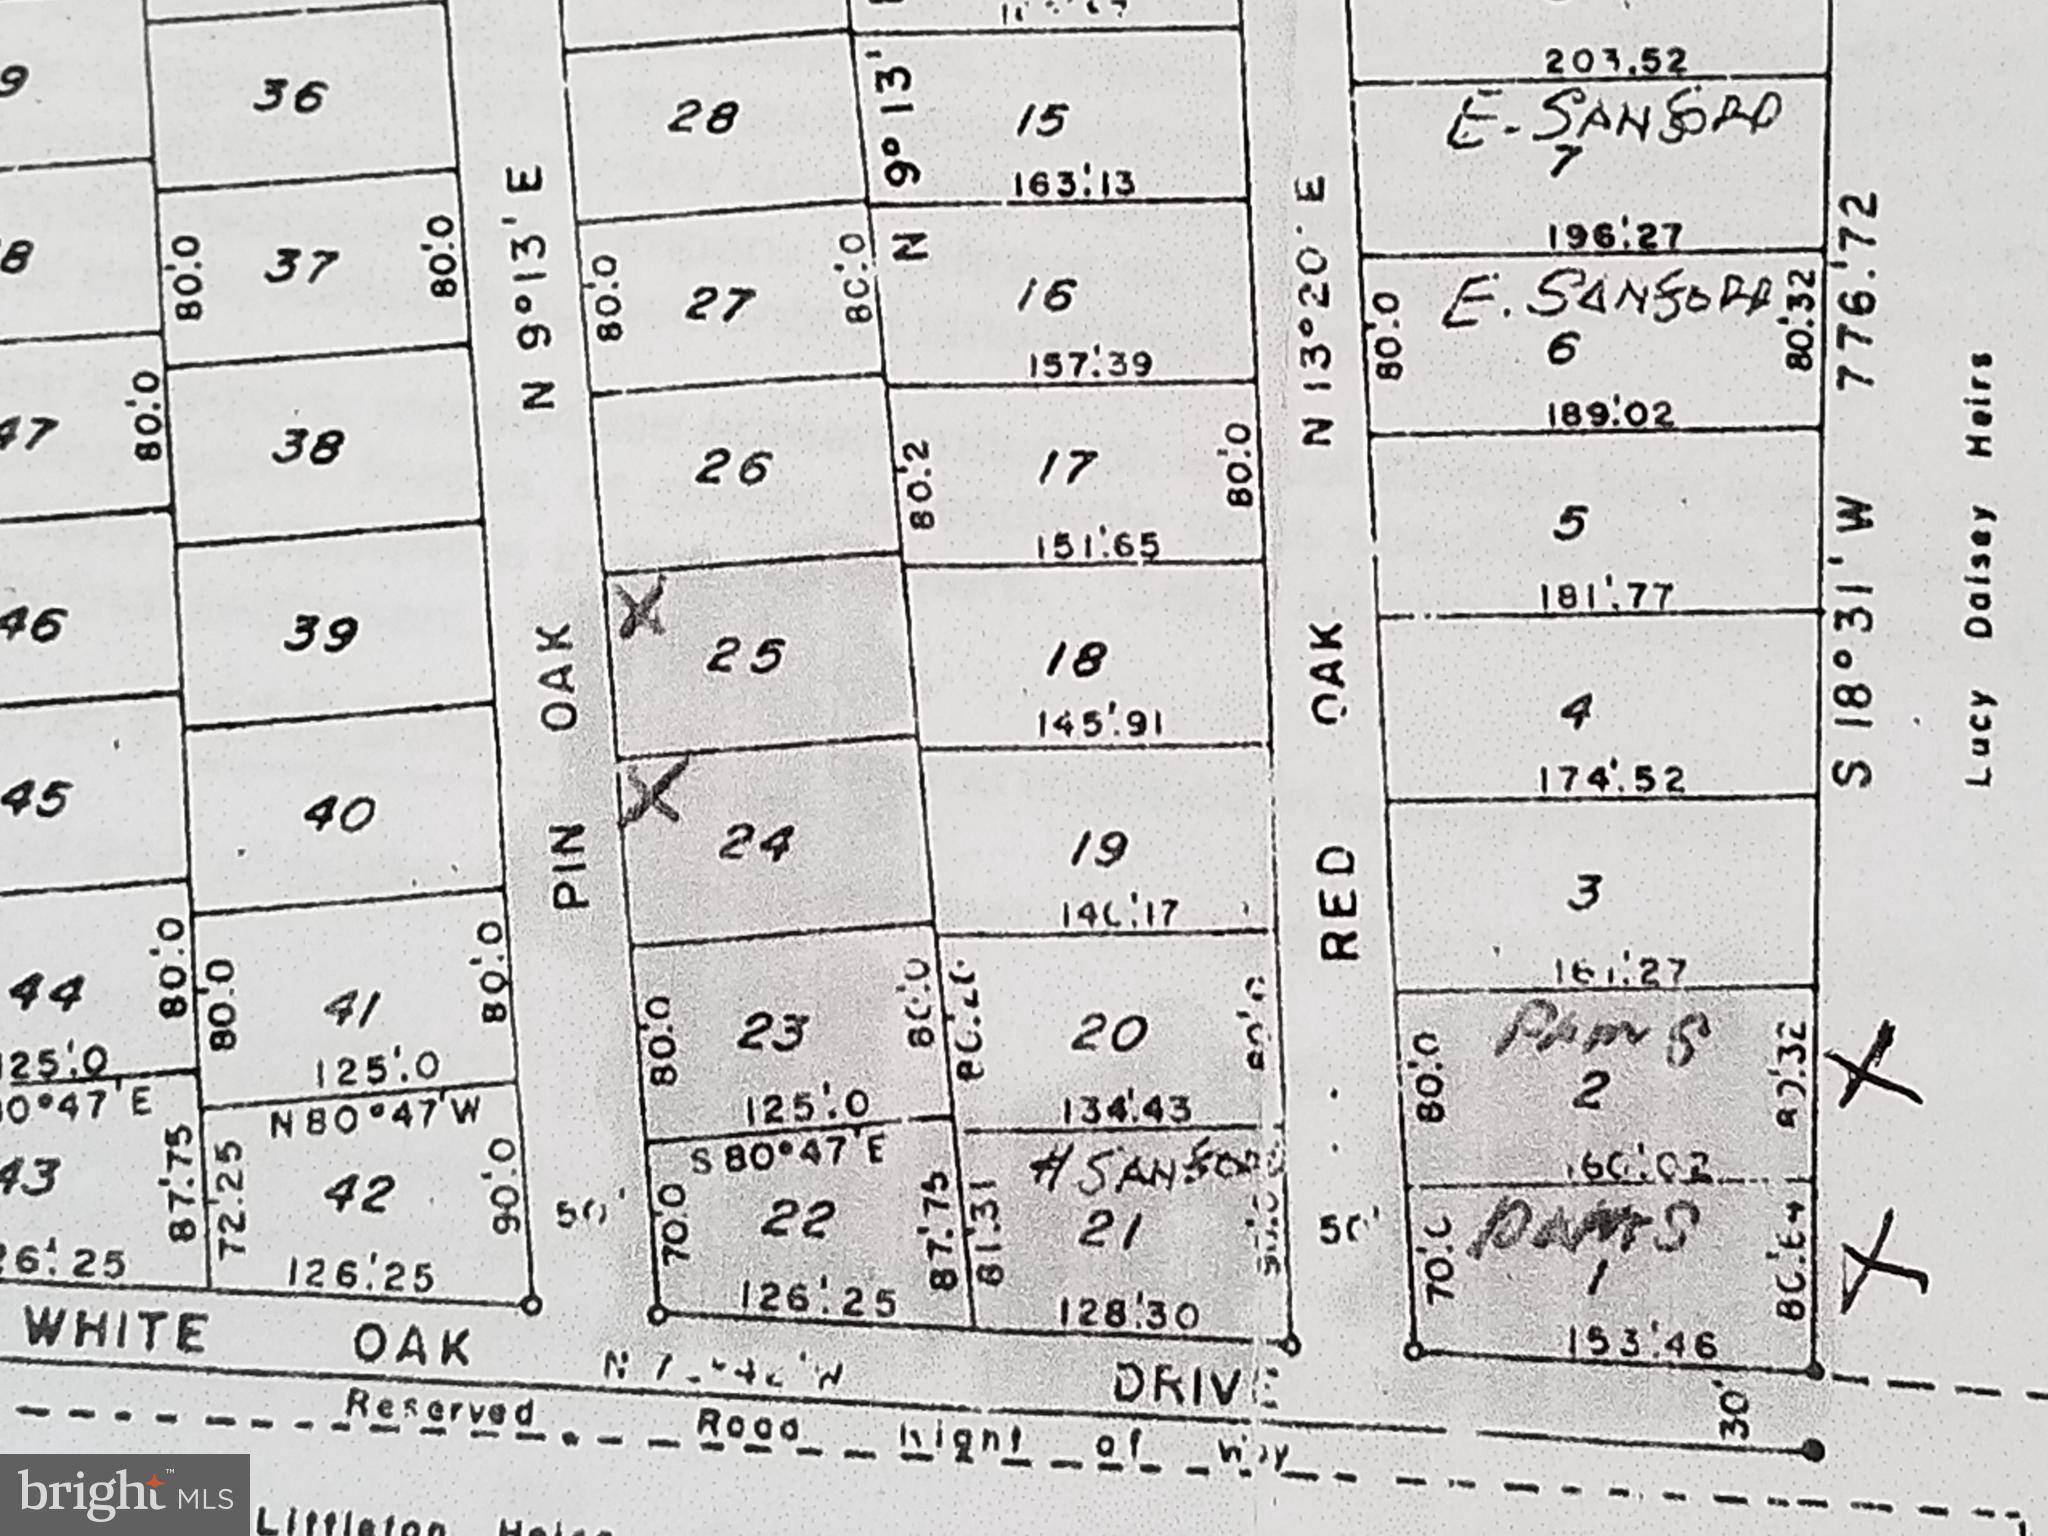 36
37
80'.0
80'.0
38
39
40
41
80'.0
80'.0
125'.0
N 80°47'W
42
72'.25
90'.0
126'.25
47
80'.0
46
45
44
80'.0
125'.0
87'.75
N 9°13' E
PIN OAK
50'
28
27
80'.0
80'.0
26
25
24
23
80'.0
80'.0
125'.0
S 80°47'E
22
70'.0
87'.75
126'.25
N 9°13'
15
163'.13
16
157'.39
17
80'.2
80'.0
151'.65
18
145'.91
19
20
134'.43
H SANFOR
21
81'.31
128'.30
N 13°20' E
RED OAK
50'
203.52
E-SANFORD
7
196'.27
E. SANFORD
6
80'.0
80'.32
189'.02
5
181'.77
4
174'.52
3
2
80'.0
80'.32
1
153'.46
S 18°31' W 776.'72
Lucy Daisey Heirs
WHITE OAK DRIVE
30'
Reserved Road Right of Way
Littleton Heirs
bright™ MLS